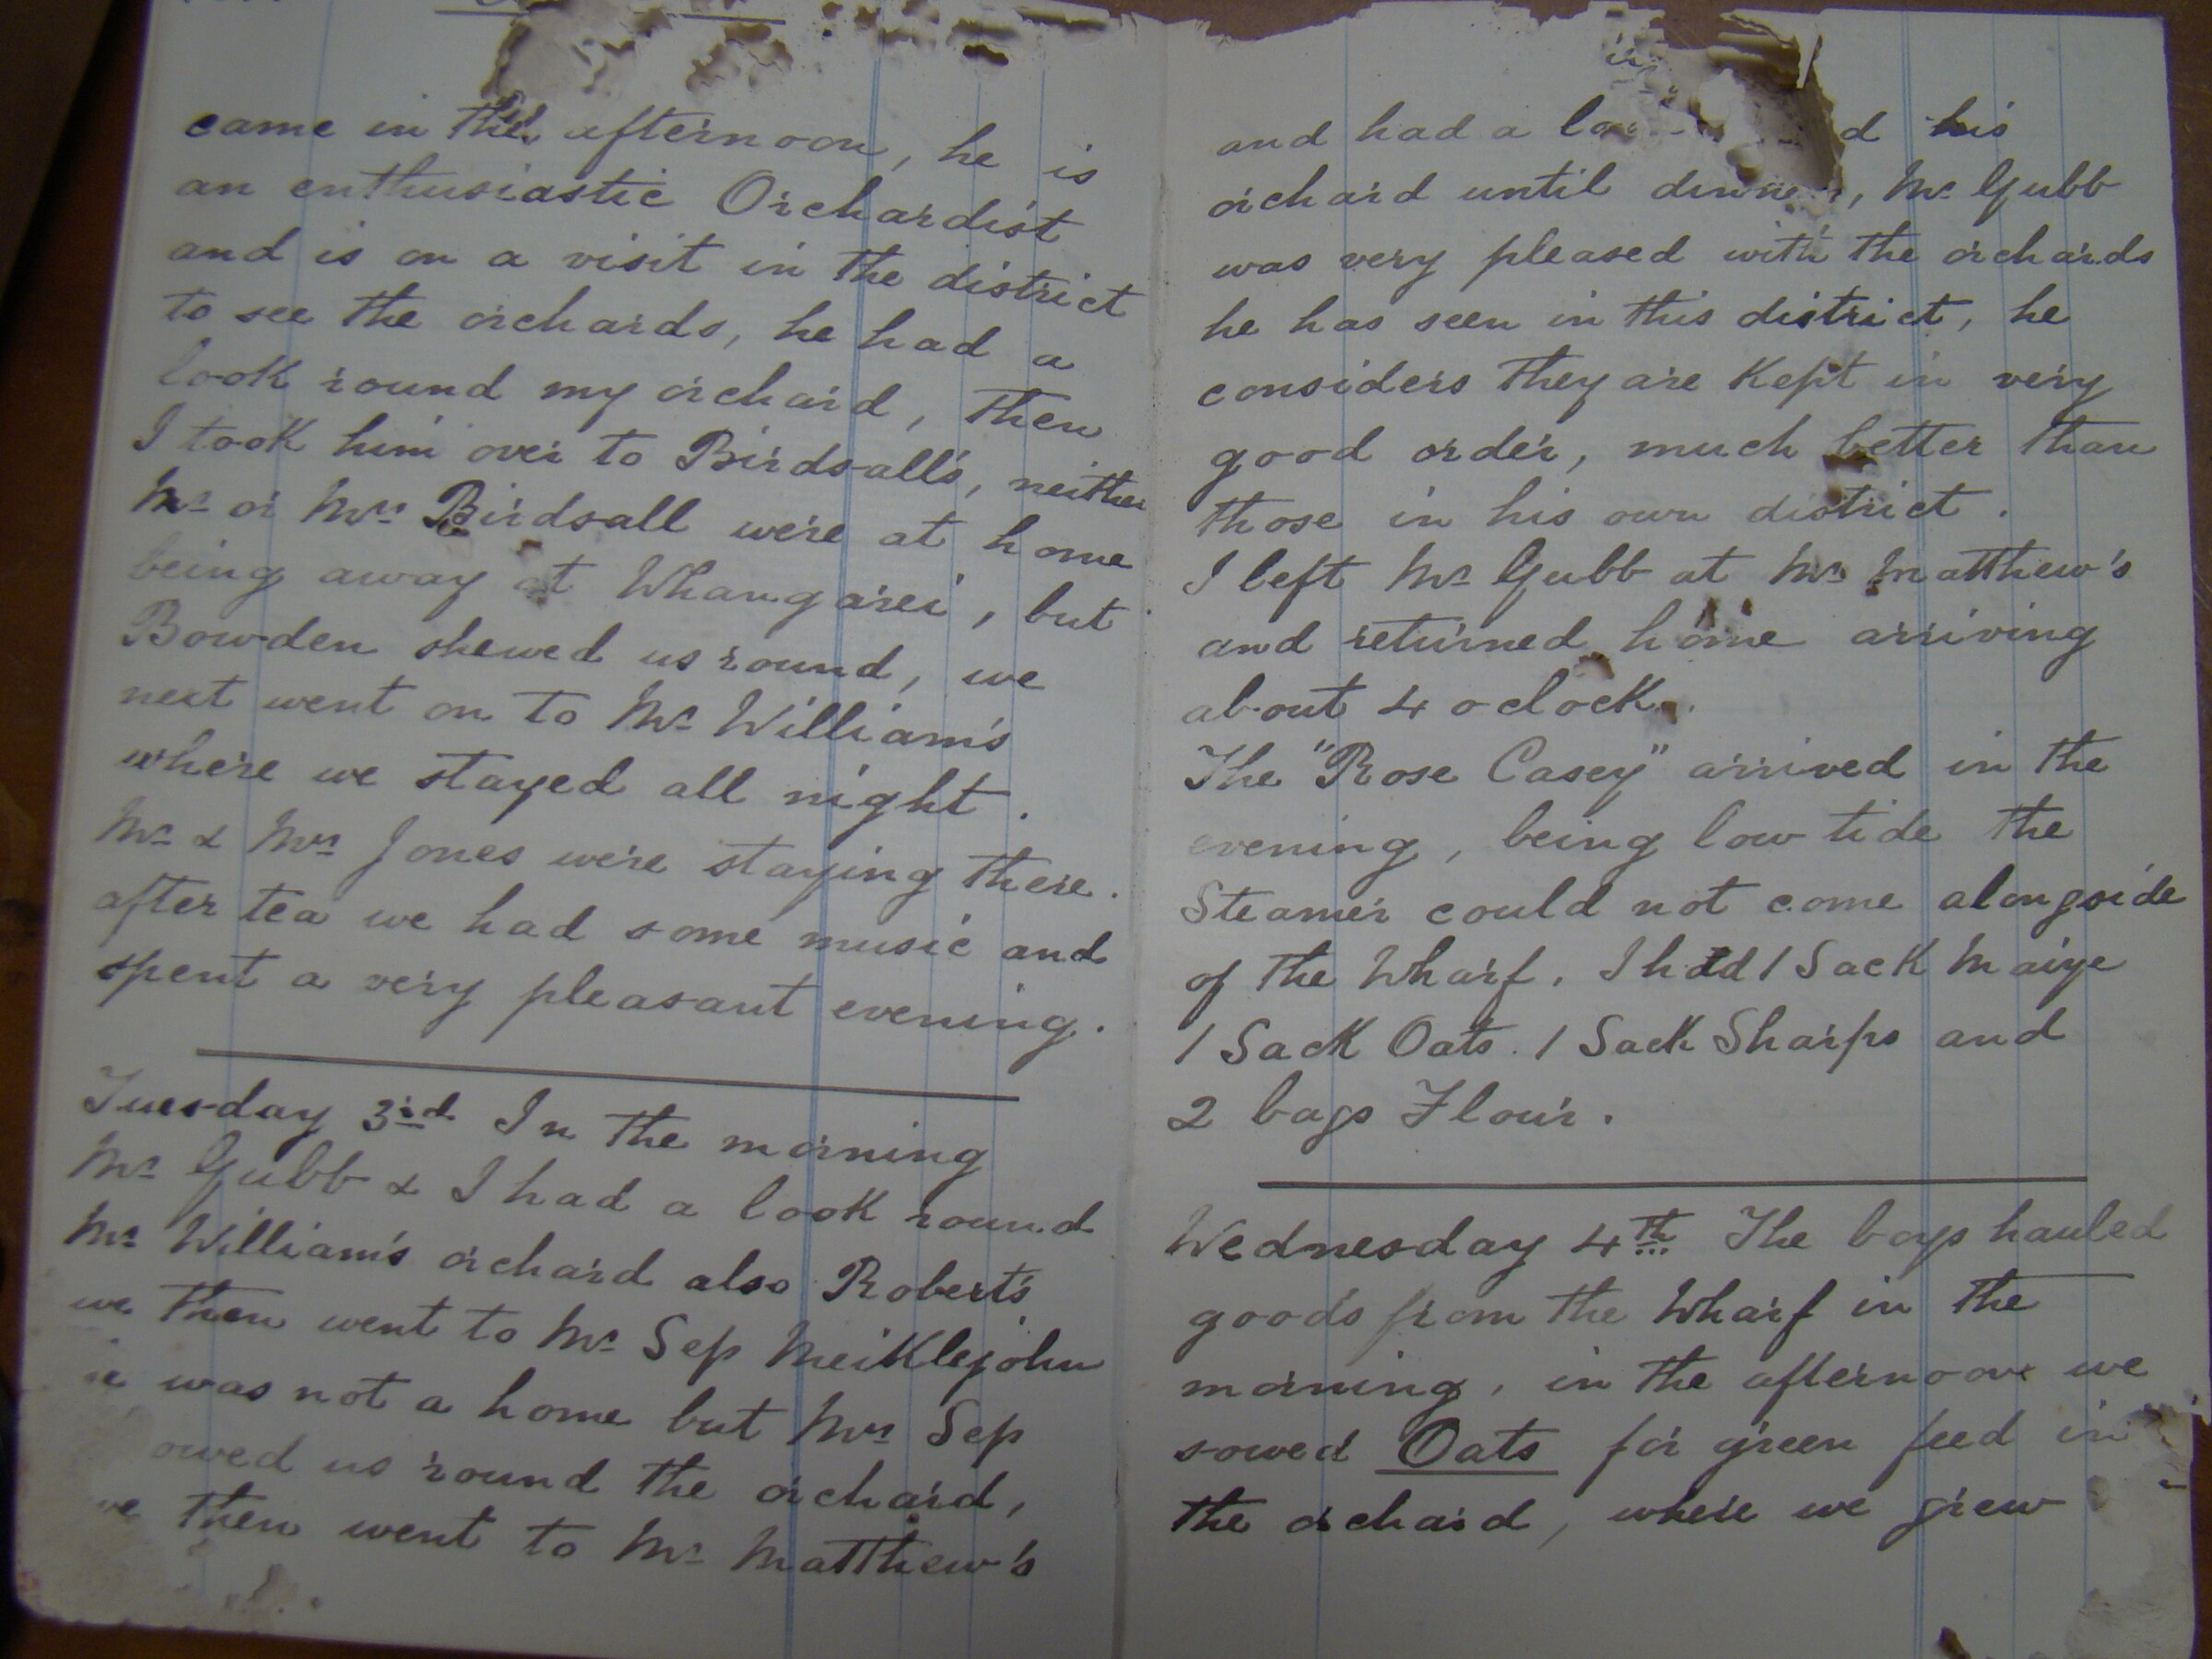 came in the afternoon, he is
an enthusiastic Orchardist
and is on a visit in the district
to see the orchards, he had a
look round my orchard, then
I took him over to Birdsall's, neither
Mr or Mrs Birdsall were at home
being away at Whangarei, but
Bowden shewed us round, we
next went on to Mr William's
where we stayed all night.
Mr & Mrs Jones were staying there.
after tea we had some music and
spent a very pleasant evening.
Tuesday 3rd In the morning
Mr Gubb & I had a look round
Mr William's orchard also Robert's
we then went to Mr Sep Meiklejohn
was not a home but Mrs Sep
owed us round the orchard,
we then went to Mr Matthew's
and had a lo d his
orchard until dinner, Mr Gubb
was very pleased with the orchards
he has seen in this district, he
considers they are kept in very
good order, much better than
those in his own district.
I left Mr Gubb at Mr Matthew's
and returned home arriving
about 4 oclock.
The "Rose Casey" arrived in the
evening, being low tide the
Steamer could not come alongside
of the Wharf. I had 1 Sack Maize
1 Sack Oats. 1 Sack Sharps and
2 bags Flour.
Wednesday 4th The boys hauled
goods from the Wharf in the
morning, in the afternoon we
sowed Oats for green feed in
the orchard, where we grew